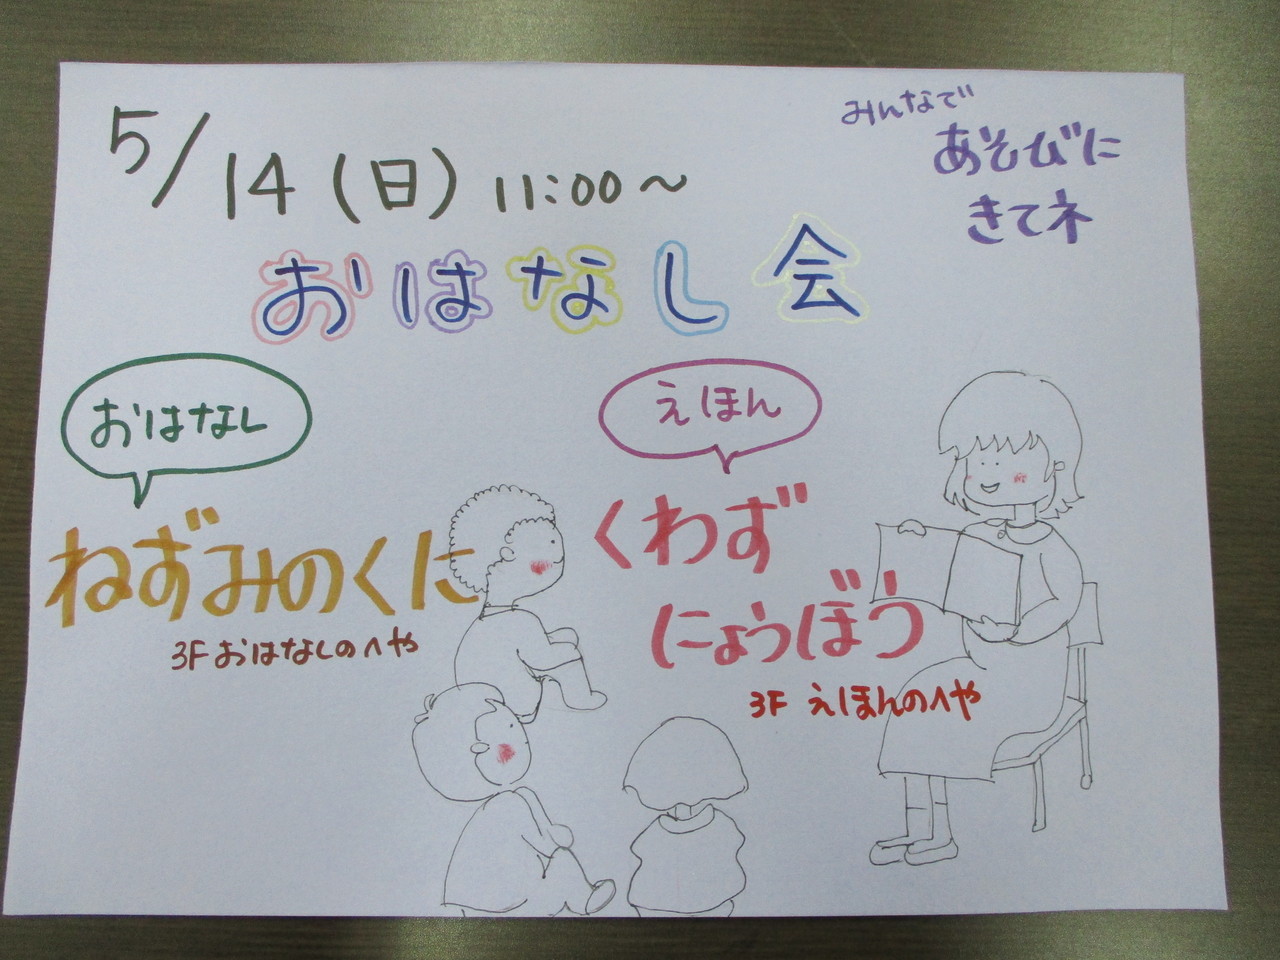 5/14(日)11:00～
みんなで
あそびに
きてネ
おはなし会
おはなし
ねずみのくに
3Fおはなしのへや
えほん
くわず
にょうぼう
3F えほんのへや